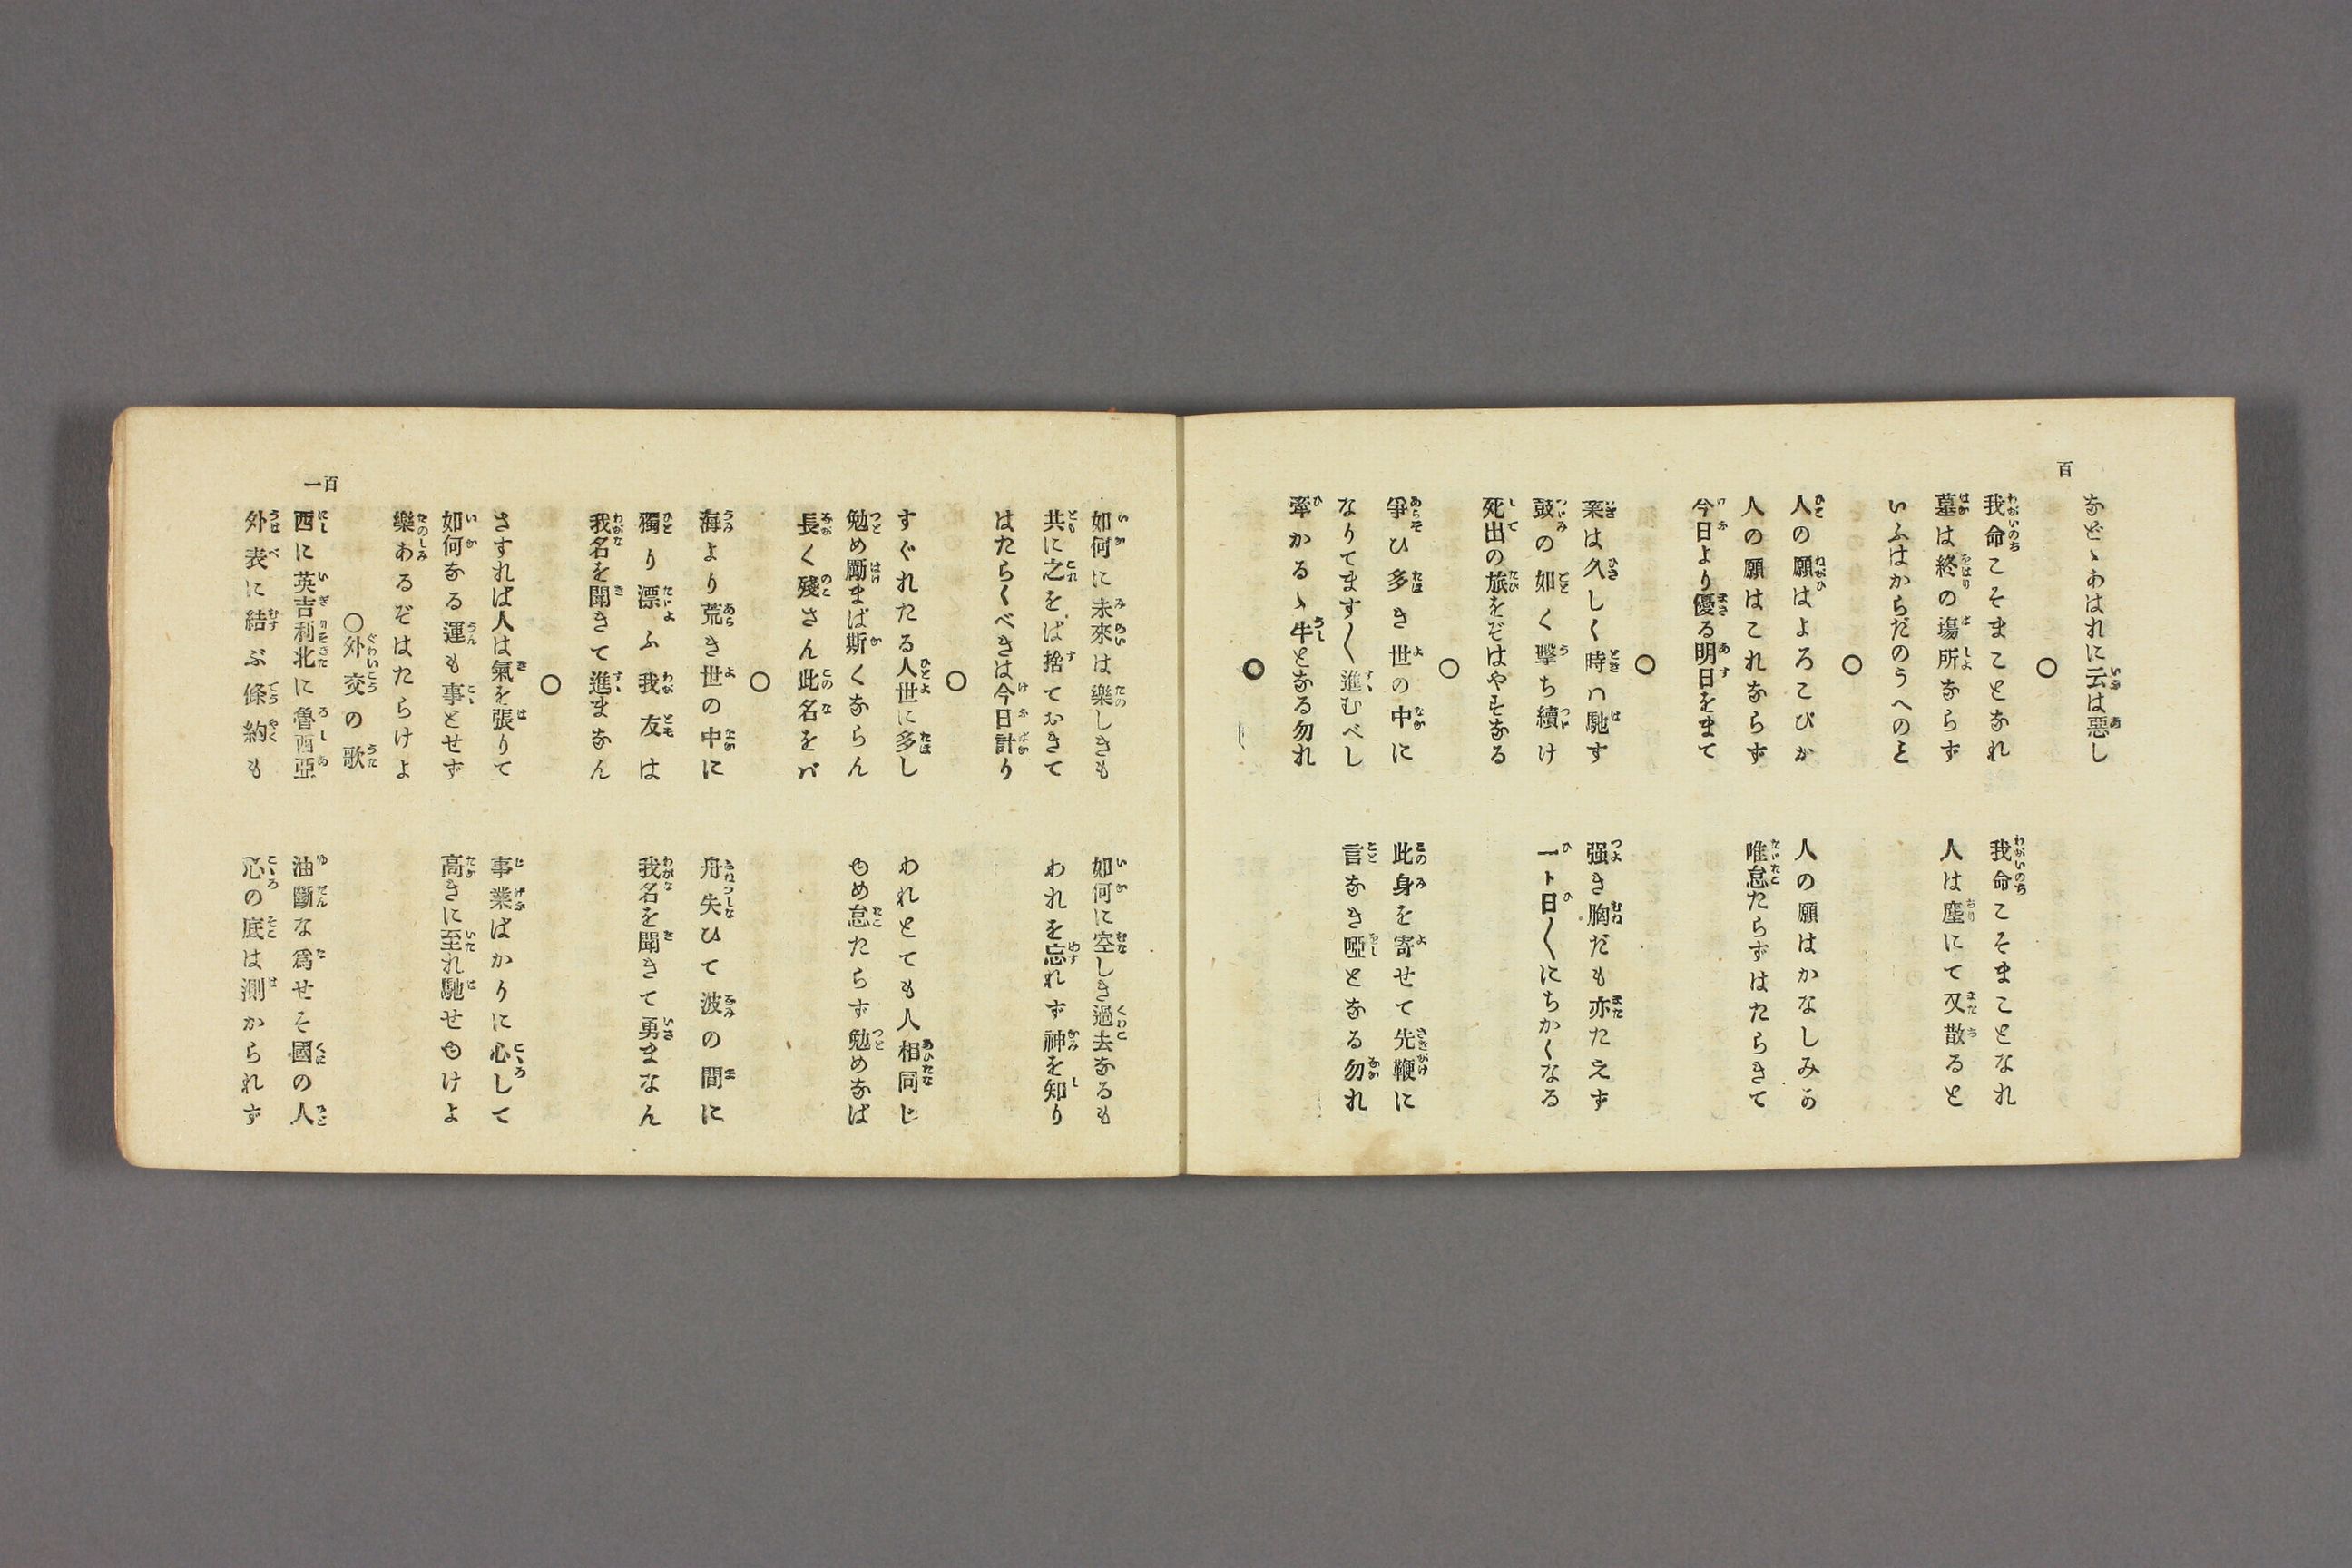 百
などゝあはれに云は惡し
○
我命こそまことなれ　我命こそまことなれ
墓は終の塲所ならず　人は塵にて又散ると
いふはからだのうへのこと
○
人の願はよろこびか　人の願はかなしみか
人の願はこれならず　唯怠たらずはたらきて
今日より優る明日をまて
○
業は久しく時ハ馳す　强き胸だも亦たえず
鼓の如く擊ち續け　一ト日〱にちかくなる
死出の旅をぞはやすなる
○
爭ひ多き世の中に　此身を寄せて先鞭に
なりてます〱進むべし　言なき啞となる勿れ
牽かるゝ牛となる勿れ
○
如何に未來は樂しきも　如何に空しき過去なるも
共に之をば捨ておきて　われを忘れず神を知り
はたらくべきは今日計り
○
すぐれたる人世に多し　われとても人相同じ
勉め勵まば斯くならん　ゆめ怠たらず勉めなば
長く殘さん此名をバ
○
海より荒き世の中に　舟失ひて波の間に
獨り漂ふ我友は　我名を聞きて勇まなん
我名を聞きて進まなん
○
さすれば人は氣を張りて　事業ばかりに心して
如何なる運も事とせず　高きに至れ馳せゆけよ
樂あるぞはたらけよ
○外交の歌
西に英吉利北に魯西亞　油斷な爲せそ國の人
外表に結ぶ條約も　心の底は測かられず
百一